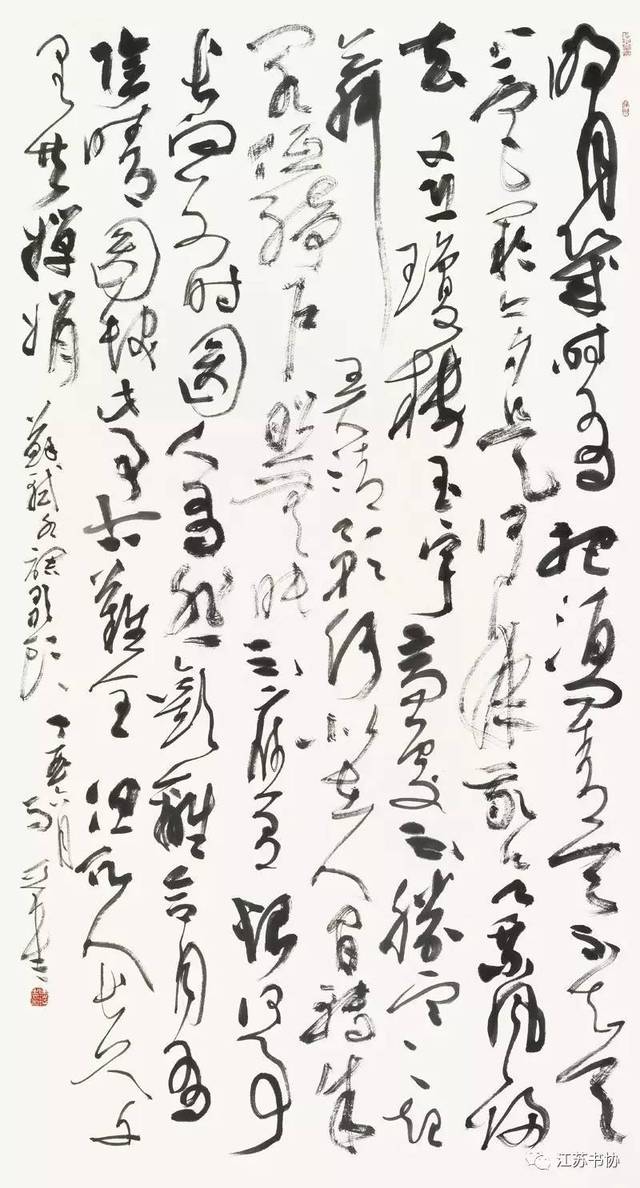 明月幾时有把酒问青天不知天
上宫阙今夕是何年我欲乘风归
去又恐瓊楼玉宇高处不勝寒起
舞弄清影何似在人间轉朱
阁低绮户照无眠不应有恨何事
长向别时圆人有悲歡離合月有
阴晴圆缺此事古難全但願人长久千
里共嬋娟
蘇軾水調歌頭 丁酉六月 书
江苏书协